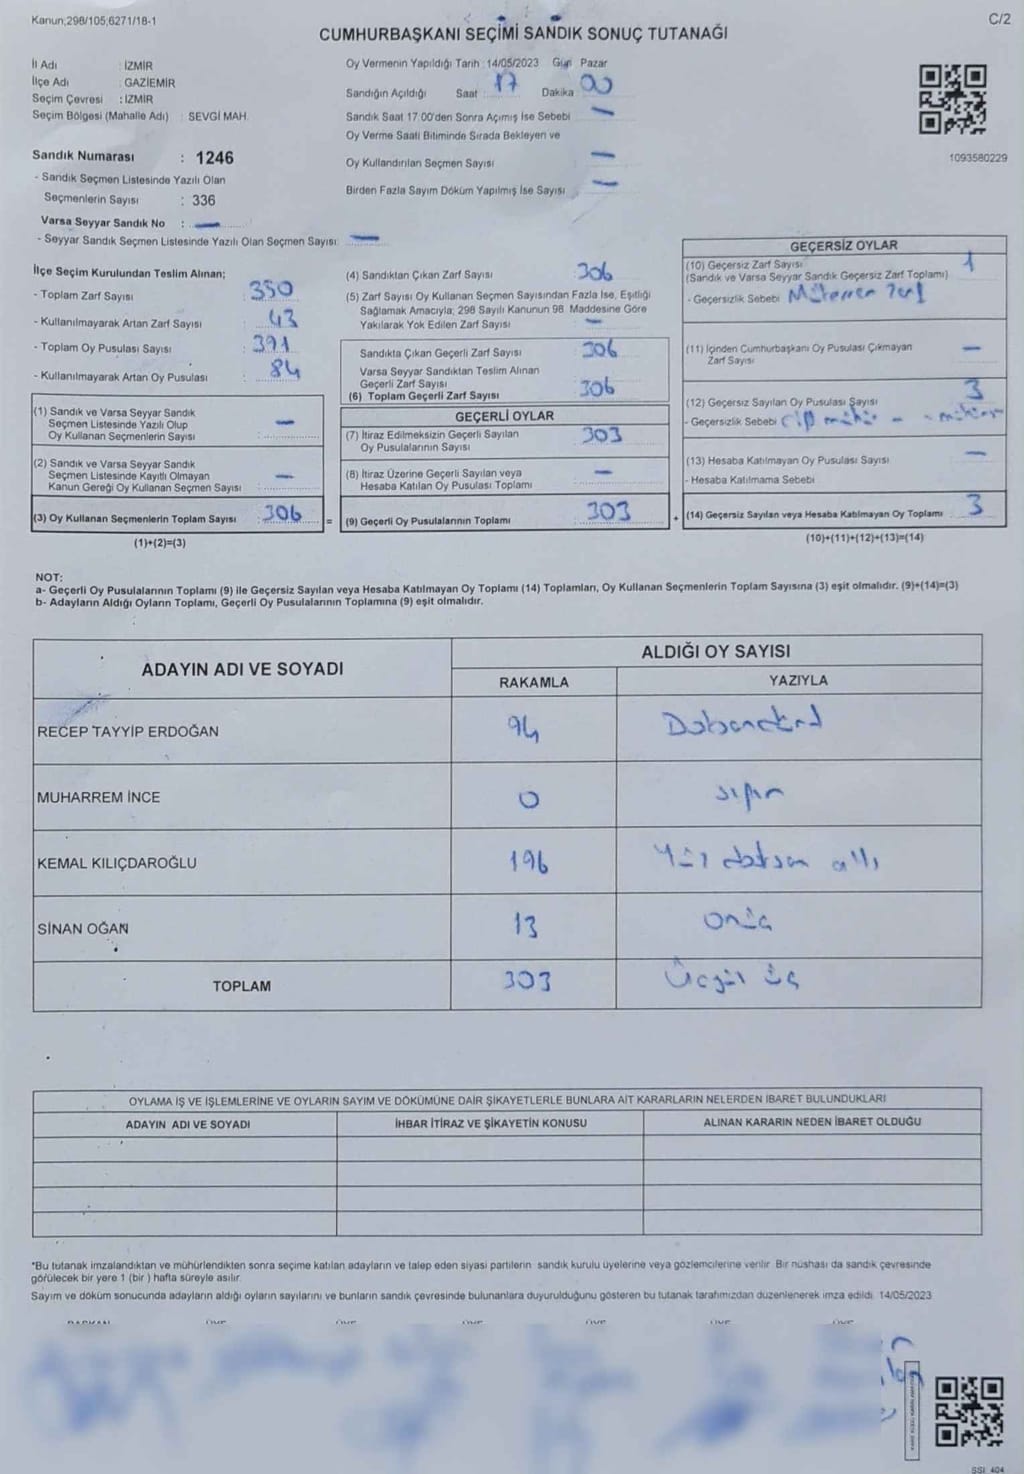 Kanun;298/105;6271/18-1
C/2
CUMHURBAŞKANI SEÇİMİ SANDIK SONUÇ TUTANAĞI
İl Adı : İZMİR
İlçe Adı : GAZİEMİR
Seçim Çevresi : İZMİR
Seçim Bölgesi (Mahalle Adı) : SEVGİ MAH.
Oy Vermenin Yapıldığı Tarih : 14/05/2023 Gün Pazar
Sandığın Açıldığı Saat : 17 Dakika : 00
Sandık Saat 17:00'den Sonra Açımış İse Sebebi : —
Oy Verme Saati Bitiminde Sırada Bekleyen ve
Oy Kullandırılan Seçmen Sayısı : —
Birden Fazla Sayım Döküm Yapılmış İse Sayısı : —
1093580229
Sandık Numarası : 1246
- Sandık Seçmen Listesinde Yazılı Olan
Seçmenlerin Sayısı : 336
Varsa Seyyar Sandık No : —
- Seyyar Sandık Seçmen Listesinde Yazılı Olan Seçmen Sayısı: —
İlçe Seçim Kurulundan Teslim Alınan;
- Toplam Zarf Sayısı : 350
- Kullanılmayarak Artan Zarf Sayısı : 43
- Toplam Oy Pusulası Sayısı : 391
- Kullanılmayarak Artan Oy Pusulası : 84
(1) Sandık ve Varsa Seyyar Sandık
Seçmen Listesinde Yazılı Olup
Oy Kullanan Seçmenlerin Sayısı : —
(2) Sandık ve Varsa Seyyar Sandık
Seçmen Listesinde Kayıtlı Olmayan
Kanun Gereği Oy Kullanan Seçmen Sayısı : —
(3) Oy Kullanan Seçmenlerin Toplam Sayısı : 306
=
(1)+(2)=(3)
(4) Sandıktan Çıkan Zarf Sayısı : 306
(5) Zarf Sayısı Oy Kullanan Seçmen Sayısından Fazla İse, Eşitliği
Sağlamak Amacıyla; 298 Sayılı Kanunun 98. Maddesine Göre
Yakılarak Yok Edilen Zarf Sayısı : —
Sandıkta Çıkan Geçerli Zarf Sayısı : 306
Varsa Seyyar Sandıktan Teslim Alınan
Geçerli Zarf Sayısı
(6) Toplam Geçerli Zarf Sayısı : 306
GEÇERLİ OYLAR
(7) İtiraz Edilmeksizin Geçerli Sayılan
Oy Pusulasının Sayısı : 303
(8) İtiraz Üzerine Geçerli Sayılan veya
Hesaba Katılan Oy Pusulası Toplamı : —
(9) Geçerli Oy Pusulalarının Toplamı : 303
+
GEÇERSİZ OYLAR
(10) Geçersiz Zarf Sayısı : 1
(Sandık ve Varsa Seyyar Sandık Geçersiz Zarf Toplamı)
- Geçersizlik Sebebi :
(11) İçinden Cumhurbaşkanı Oy Pusulası Çıkmayan
Zarf Sayısı : —
(12) Geçersiz Sayılan Oy Pusulası Sayısı : 3
- Geçersizlik Sebebi :
(13) Hesaba Katılmayan Oy Pusulası Sayısı : —
- Hesaba Katılmama Sebebi
(14) Geçersiz Sayılan veya Hesaba Katılmayan Oy Toplamı : 3
(10)+(11)+(12)+(13)=(14)
NOT:
a- Geçerli Oy Pusulalarının Toplamı (9) ile Geçersiz Sayılan veya Hesaba Katılmayan Oy Toplamı (14) Toplamları, Oy Kullanan Seçmenlerin Toplam Sayısına (3) eşit olmalıdır. (9)+(14)=(3)
b- Adayların Aldığı Oyların Toplamı, Geçerli Oy Pusulalarının Toplamına (9) eşit olmalıdır.
ADAYIN ADI VE SOYADI
ALDIĞI OY SAYISI
RAKAMLA YAZIYLA
RECEP TAYYİP ERDOĞAN 94 Doksandört
MUHARREM İNCE 0 sıfır
KEMAL KILIÇDAROĞLU 196 Yüz doksan altı
SİNAN OĞAN 13 onüç
TOPLAM 303 Üçyüz üç
OYLAMA İŞ VE İŞLEMLERİNE VE OYLARIN SAYIM VE DÖKÜMÜNE DAİR ŞİKAYETLERLE BUNLARA AİT KARARLARIN NELERDEN İBARET BULUNDUKLARI
ADAYIN ADI VE SOYADI İHBAR İTİRAZ VE ŞİKAYETİN KONUSU ALINAN KARARIN NEDEN İBARET OLDUĞU
*Bu tutanak imzalandıktan ve mühürlendikten sonra seçime katılan adayların ve talep eden siyasi partilerin sandık kurulu üyelerine veya gözlemcilerine verilir. Bir nüshası da sandık çevresinde
görülecek bir yere 1 (bir ) hafta süreyle asılır.
Sayım ve döküm sonucunda adayların aldığı oyların sayılarını ve bunların sandık çevresinde bulunanlara duyurulduğunu gösteren bu tutanak tarafımızdan düzenlenerek imza edildi. 14/05/2023
SSI: 404